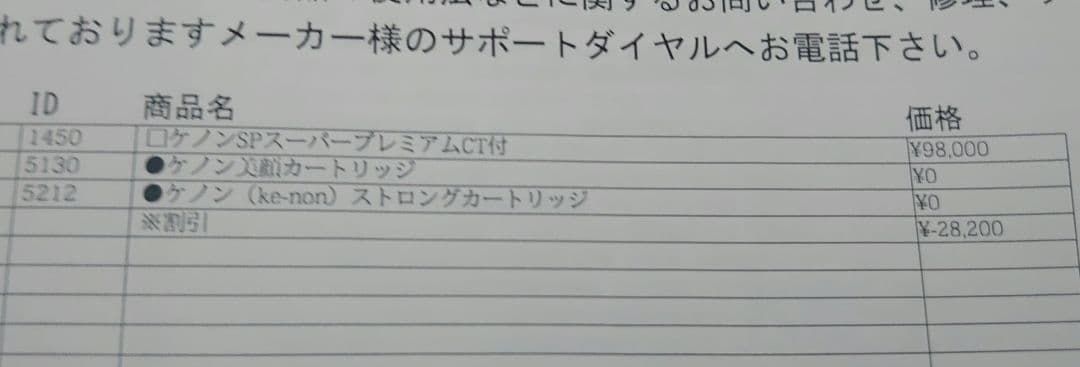 に関するお問い合わせ、修理、
れておりますメーカー様のサポートダイヤルへお電話下さい。
ID 商品名 価格
1450 □ケノンSPスーパープレミアムCT付 ¥98,000
5130 ●ケノン美顔カートリッジ ¥0
5212 ●ケノン（ke-non）ストロングカートリッジ ¥0
※割引 ¥-28,200